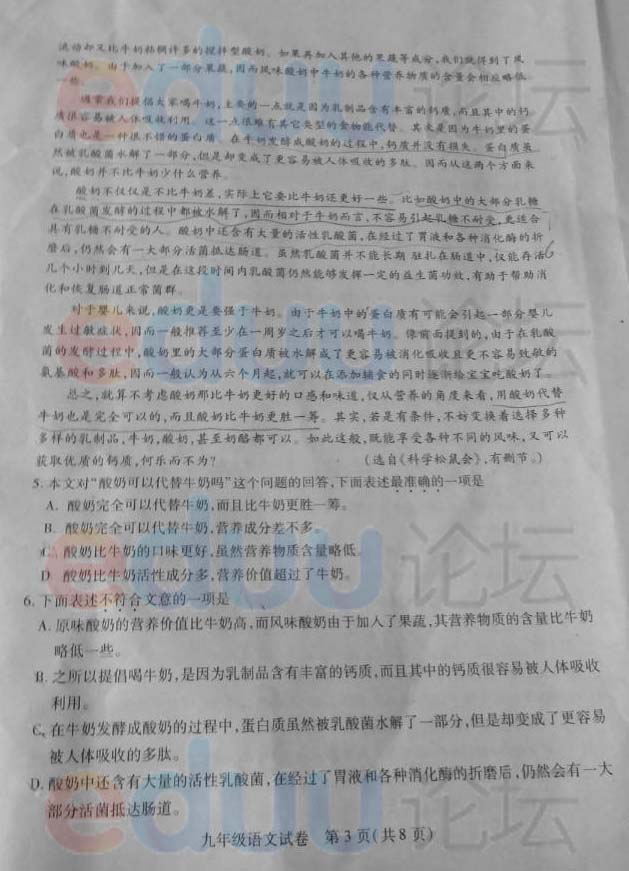 流动却又比牛奶粘稠许多的搅拌型酸奶。如果再加入其他的果蔬等成分,我们就得到了风
味酸奶。由于加入了一部分果蔬,因而风味酸奶中牛奶的各种营养物质的含量会相应略低
一些。
通常我们提倡大家喝牛奶,主要的一点就是因为乳制品含有丰富的钙质,而且其中的钙
质很容易被人体吸收利用。这一点很难有其它类型的食物能代替。其次是因为牛奶里的蛋
白质也是一种很不错的蛋白质。在牛奶发酵成酸奶的过程中,钙质并没有损失。蛋白质虽
然被乳酸菌水解了一部分,但是却变成了更容易被人体吸收的多肽。因而从这两个方面来
说,酸奶并不比牛奶少什么营养。
酸奶不仅仅是不比牛奶差,实际上它要比牛奶还更好一些。比如酸奶中的大部分乳糖
在乳酸菌发酵的过程中都被水解了,因而相对于牛奶而言,不容易引起乳糖不耐受,更适合
具有乳糖不耐受的人。酸奶中还含有大量的活性乳酸菌,在经过了胃液和各种消化酶的折
磨后,仍然会有一大部分活菌抵达肠道。虽然乳酸菌并不能长期驻扎在肠道中,仅能存活
几个小时到几天,但是在这段时间内乳酸菌仍然能够发挥一定的益生菌功效,有助于帮助消
化和恢复肠道正常菌群。
对于婴儿来说,酸奶更是要强于牛奶。由于牛奶中的蛋白质有可能会引起一部分婴儿
发生过敏症状,因而一般推荐至少在一周岁之后才可以喝牛奶。像前面提到的,由于在乳酸
菌的发酵过程中,酸奶里的大部分蛋白质被水解成了更容易被消化吸收且更不容易致敏的
氨基酸和多肽,因而一般认为从六个月起,就可以在添加辅食的同时逐渐给宝宝吃酸奶了。
总之,就算不考虑酸奶那比牛奶更好的口感和味道,仅从营养的角度来看,用酸奶代替
牛奶也是完全可以的,而且酸奶比牛奶更胜一筹。其实,若是有条件,不妨变换着选择多种
多样的乳制品,牛奶,酸奶,甚至奶酪都可以。如此这般,既能享受各种不同的风味,又可以
获取优质的钙质,何乐而不为? (选自《科学松鼠会》,有删节。)
5. 本文对“酸奶可以代替牛奶吗”这个问题的回答,下面表述最准确的一项是
A. 酸奶完全可以代替牛奶,而且比牛奶更胜一筹。
B. 酸奶完全可以代替牛奶,营养成分差不多。
C. 酸奶比牛奶的口味更好,虽然营养物质含量略低。
D. 酸奶比牛奶活性成分多,营养价值超过了牛奶。
6. 下面表述不符合文意的一项是
A. 原味酸奶的营养价值比牛奶高,而风味酸奶由于加入了果蔬,其营养物质的含量比牛奶
略低一些。
B. 之所以提倡喝牛奶,是因为乳制品含有丰富的钙质,而且其中的钙质很容易被人体吸收
利用。
C. 在牛奶发酵成酸奶的过程中,蛋白质虽然被乳酸菌水解了一部分,但是却变成了更容易
被人体吸收的多肽。
D. 酸奶中还含有大量的活性乳酸菌,在经过了胃液和各种消化酶的折磨后,仍然会有一大
部分活菌抵达肠道。
九年级语文试卷 第3页(共8页)
eduu论坛
eduu论坛
eduu论坛
eduu论坛